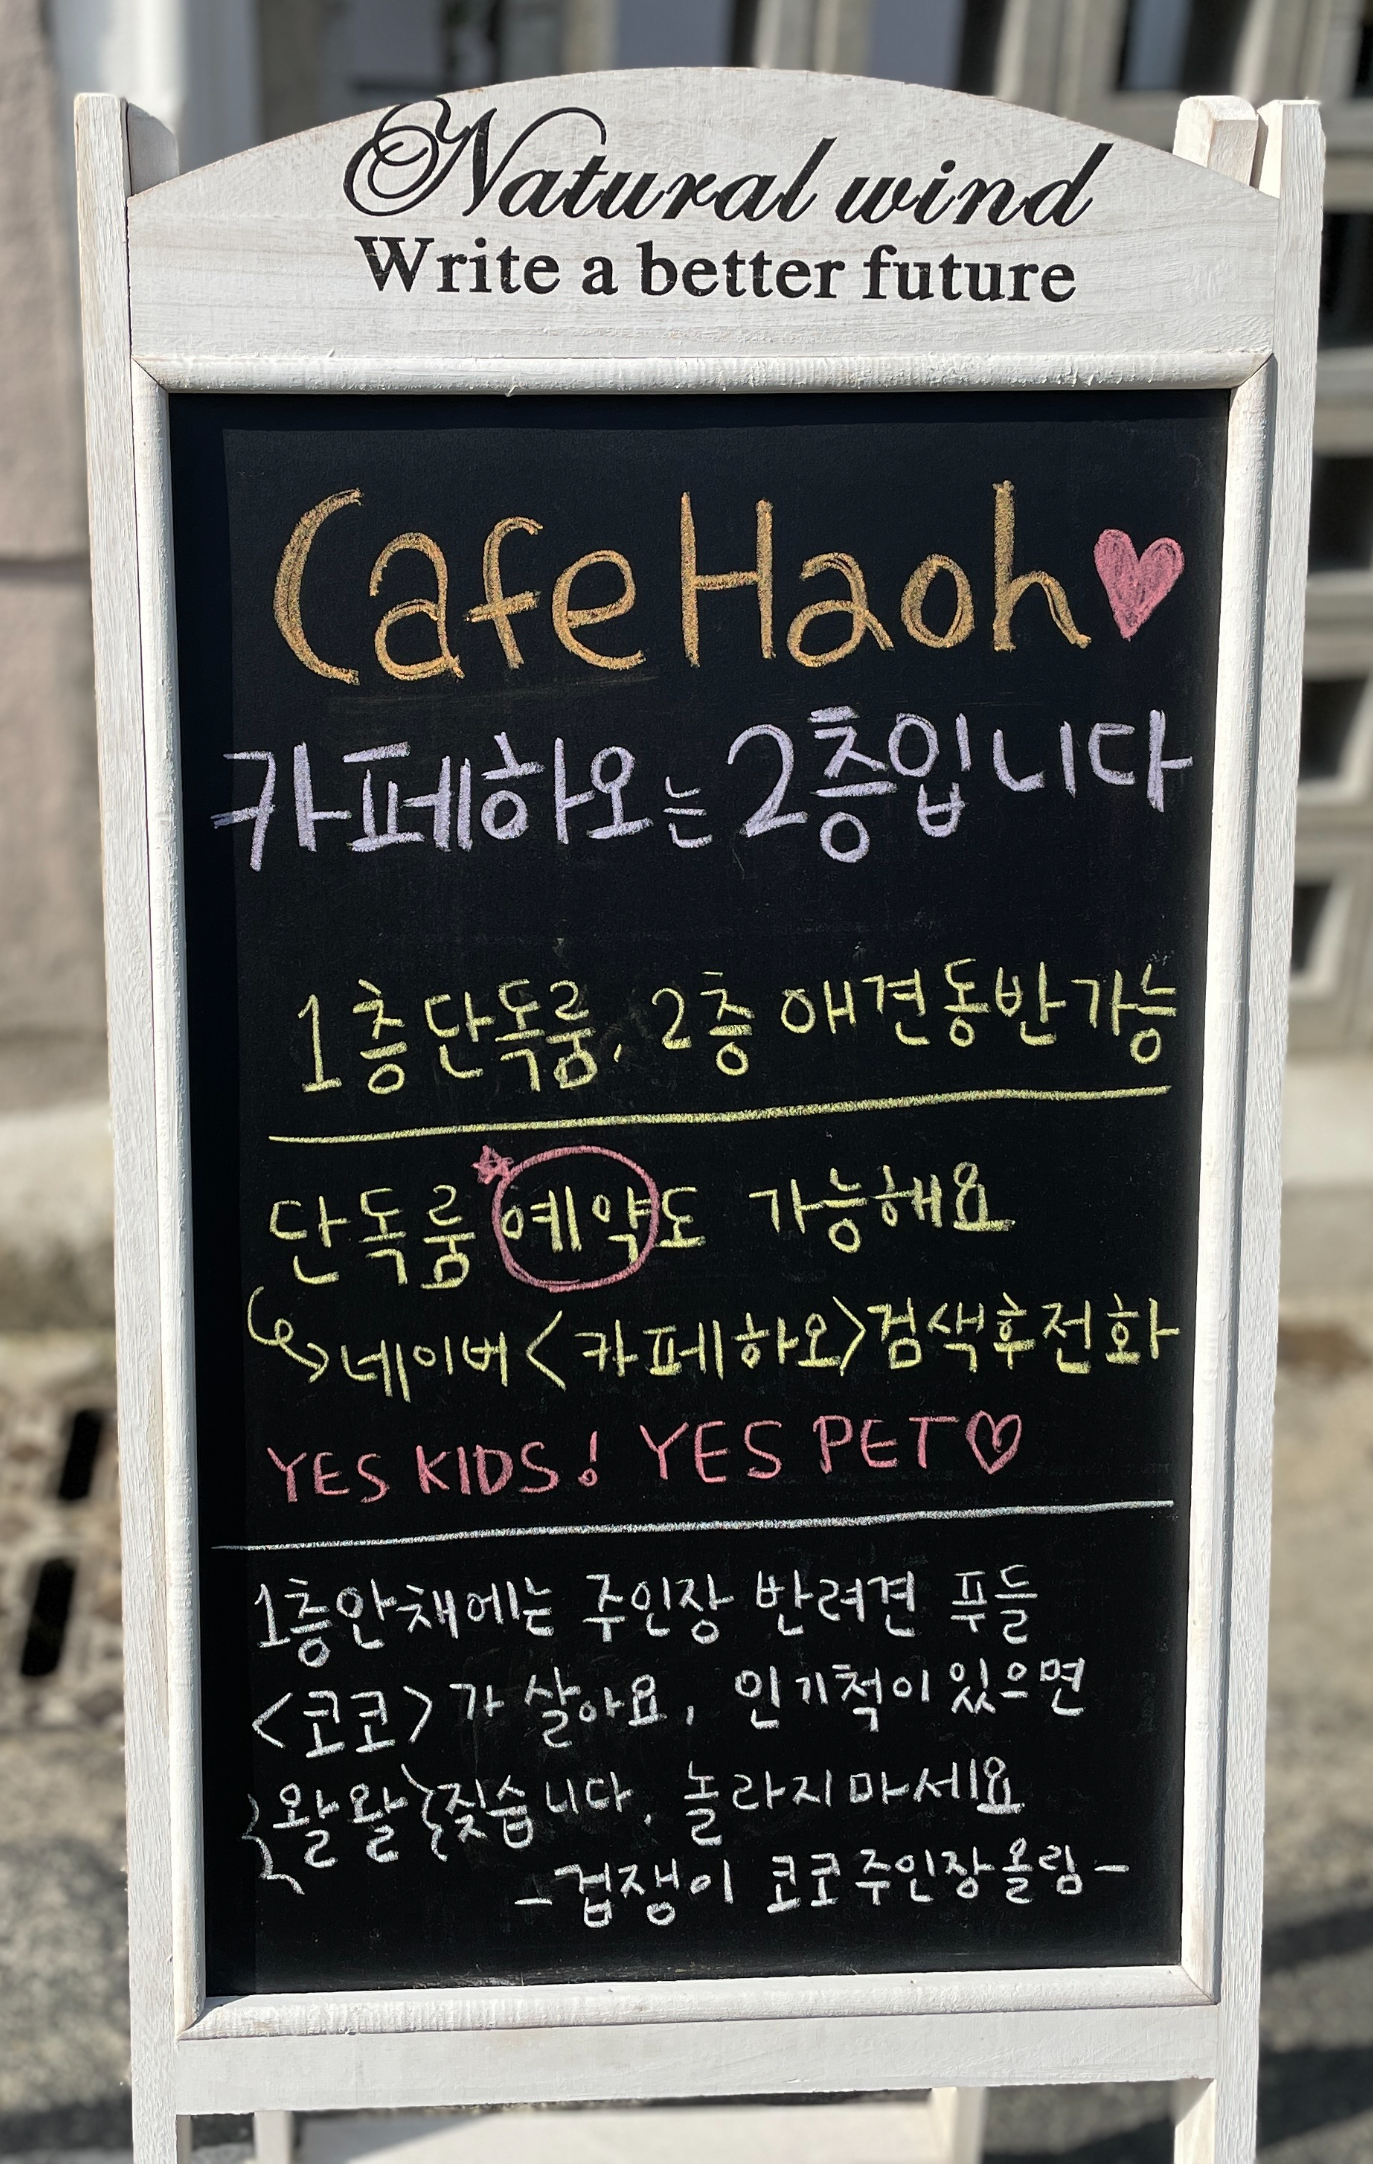 Natural wind
Write a better future
Cafe Haoh
카페하오는 2층입니다
1층단독룸, 2층 애견동반가능
단독룸 예약도 가능해요
네이버<카페하오>검색후전화
YES KIDS! YES PET
1층안채에는 주인장 반려견 푸들
<코코>가 살아요, 인기척이 있으면
왈왈 짖습니다. 놀라지마세요
-겁쟁이 코코주인장올림-